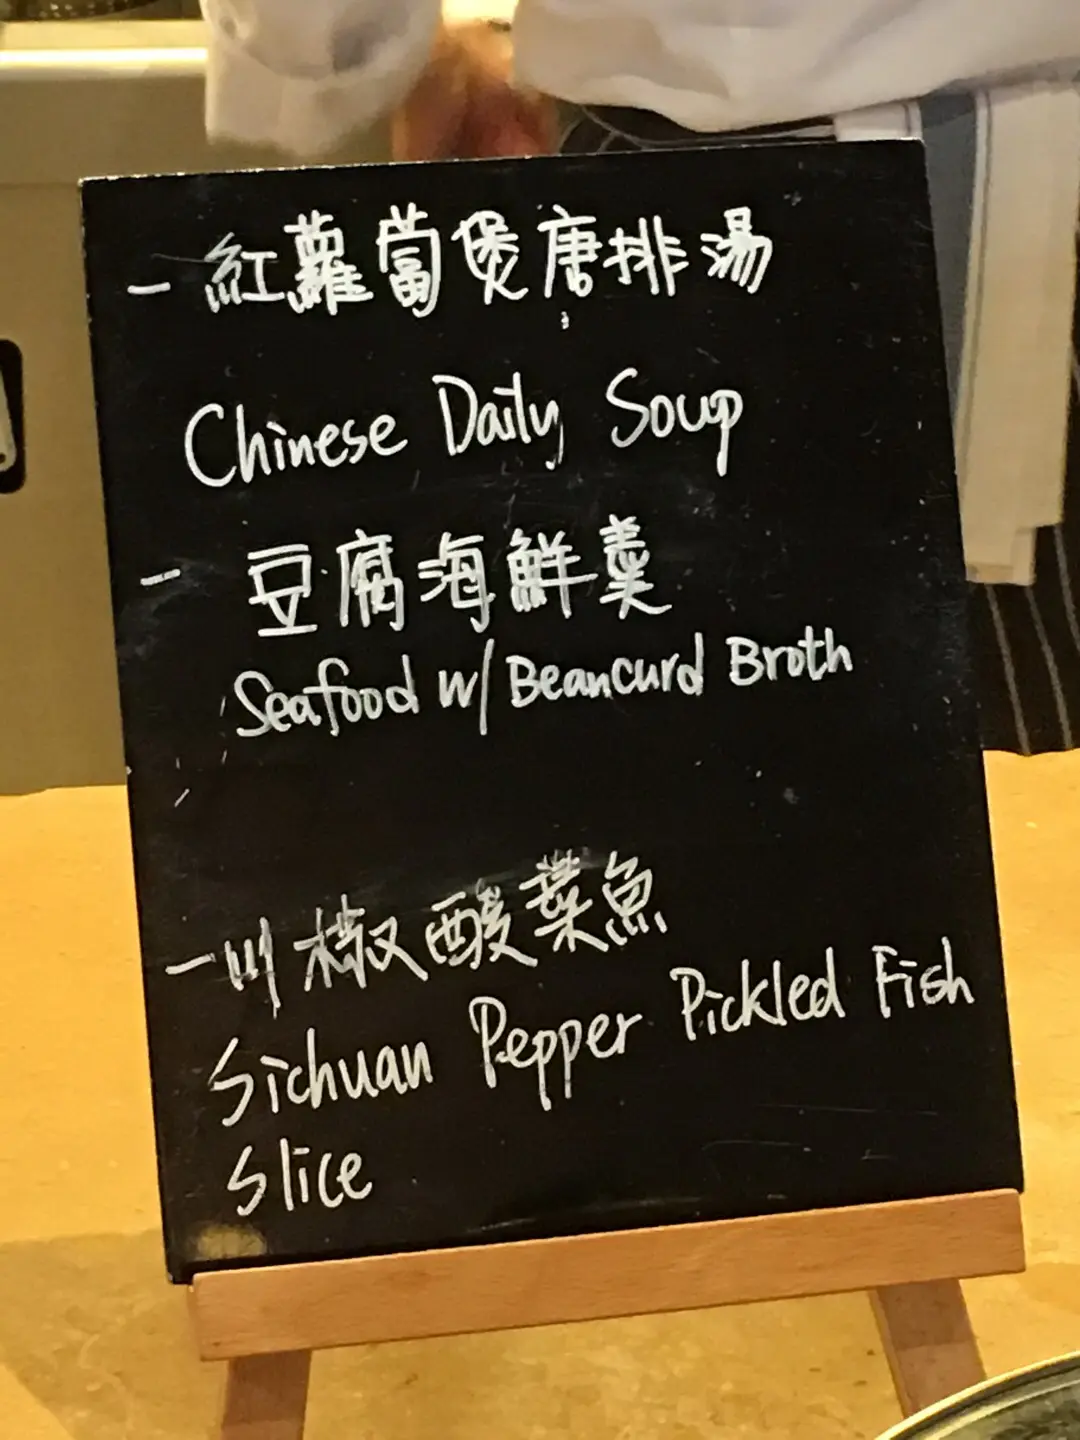 - 紅蘿蔔煲唐排湯
Chinese Daily Soup
- 豆腐海鮮羹
Seafood w/ Beancurd Broth
- 川椒酸菜魚
Sichuan Pepper Pickled Fish
Slice